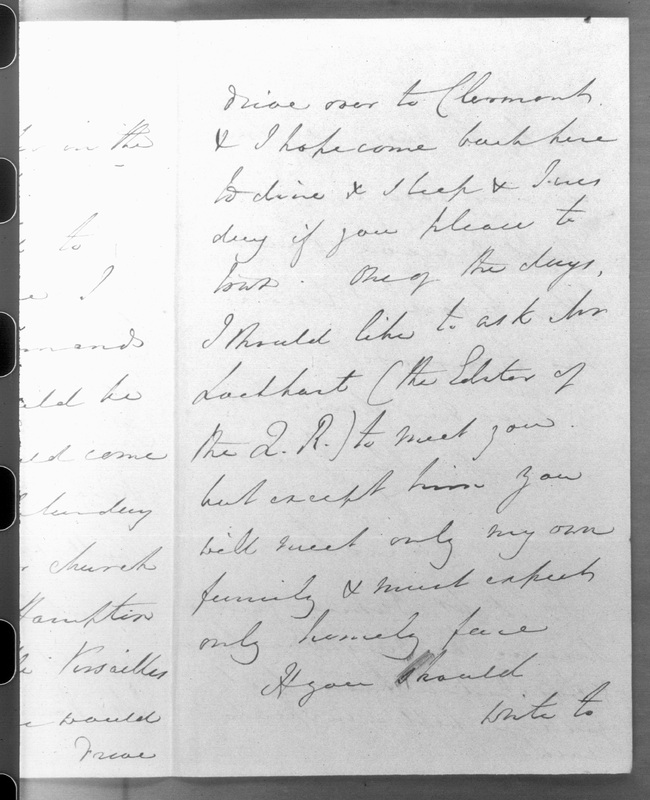 in the
to
I
be
come
church
Hampton
Versailles
would
drive
drive over to Clermont
& I hope come back here
to dine & sleep & Tues
day if you please to
town. One of the days,
I should like to ask Mr
Lockhart (the Editor of
the Q. R.) to meet you.
but except him you
will meet only my own
family & must expect
only homely fare
If you should
write to